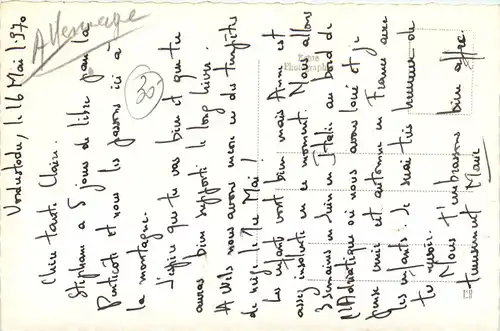 Allemagne
30
Vorderstodu, le 16 Mai 1970
Chère tante Claire,
Stéphane a 5 jours de libre pour la
Pentecôte et nous les passons ici à
la montagne.
J'espère que tu vas bien et que tu
auras bien supporté le long hiver.
A Vils nous avons encore eu des tempêtes
de neige le 1er Mai !
Les enfants vont bien mais Anne est
assez insolente en ce moment. Nous allons
3 semaines en Juin en Italie au bord de
l'Adriatique où nous avons loué et je
pense venir cet automne en France avec
les enfants. Je serai très heureuse de
te revoir.
Nous t'embrassons bien affec-
tueusement Marie
Photograph